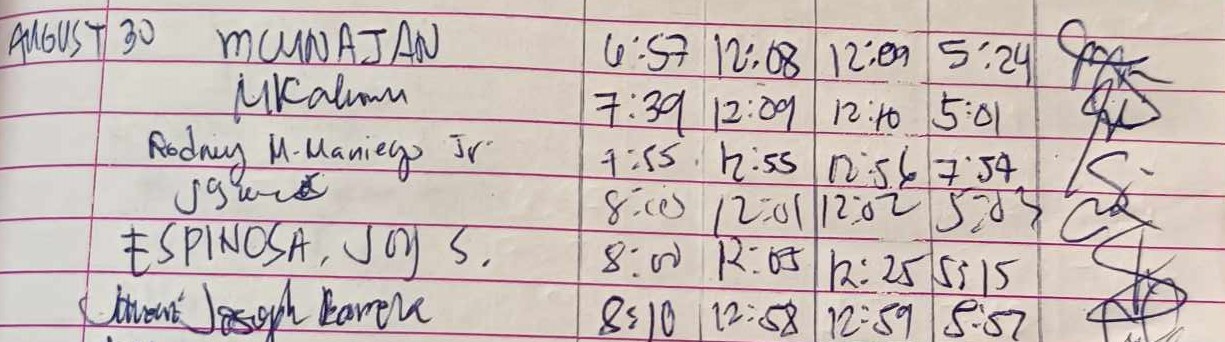 AUGUST 30 MCUNAJAN 6:57 12:08 12:09 5:24
7:39 12:09 12:10 5:01
Rodney M. Maniego Jr. 7:55 12:55 12:56 7:54
8:00 12:01 12:02 5:03
ESPINOSA, JOY S. 8:00 12:05 12:25 5:15
Joseph 8:10 12:58 12:59 5:57